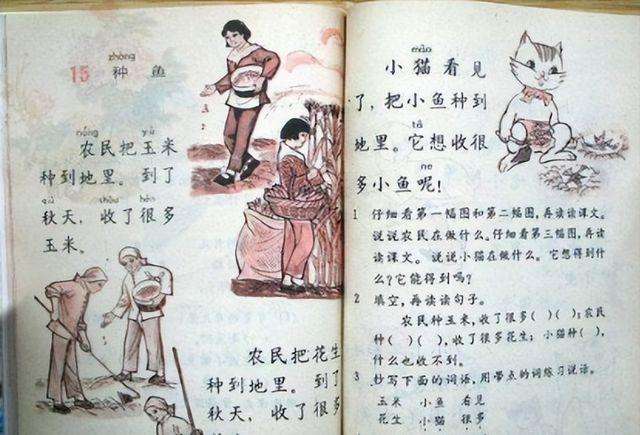 zhòng
15 种鱼
nóng yù
农民把玉米
种到地里。到了
qiū shōu hěn
秋天，收了很多
玉米。
农民把花生
种到地里。到了
秋天，收了很多
māo
小猫看见
了，把小鱼种到
tā
地里。它想收很
ne
多小鱼呢！
1 仔细看第一幅图和第二幅图，再读读课文。
说说农民在做什么。仔细看第三幅图，再读
读课文。说说小猫在做什么。它想得到什
么？它能得到吗？
2 填空，再读读句子。
农民种玉米，收了很多（ ）（ ）；农民
种（ ）（ ），收了很多花生；小猫种（ ），
什么也收不到。
3 抄写下面的词语，用带点的词练习说话。
玉米 小鱼 看见
花生 小猫 很多